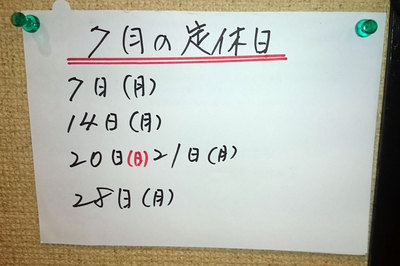 7月の定休日
7日(月)
14日(月)
20日(日)21日(月)
28日(月)